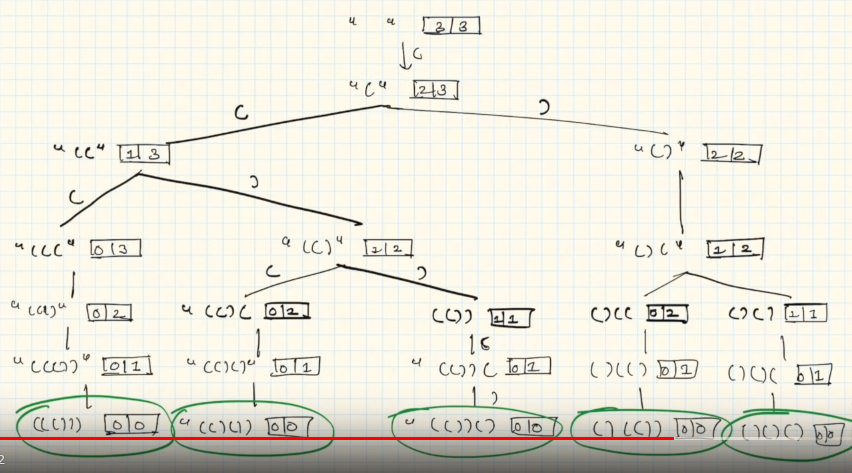 " " 3 3
(
"(" 2 3
( )
"((" 1 3
"()" 2 2
( )
"(((" 0 3
"(()" 1 2
"()(" 1 2
( )
0 2
"(()( 0 2
(()) 1 1
()(( 0 2
()() 1 1
(
"((())" 0 1
"(()()" 0 1
"(())( 0 1
()(() 0 1
()()( 0 1
)
0 0
"(()()) 0 0
"(())() 0 0
()(()) 0 0
()()() 0 0
2